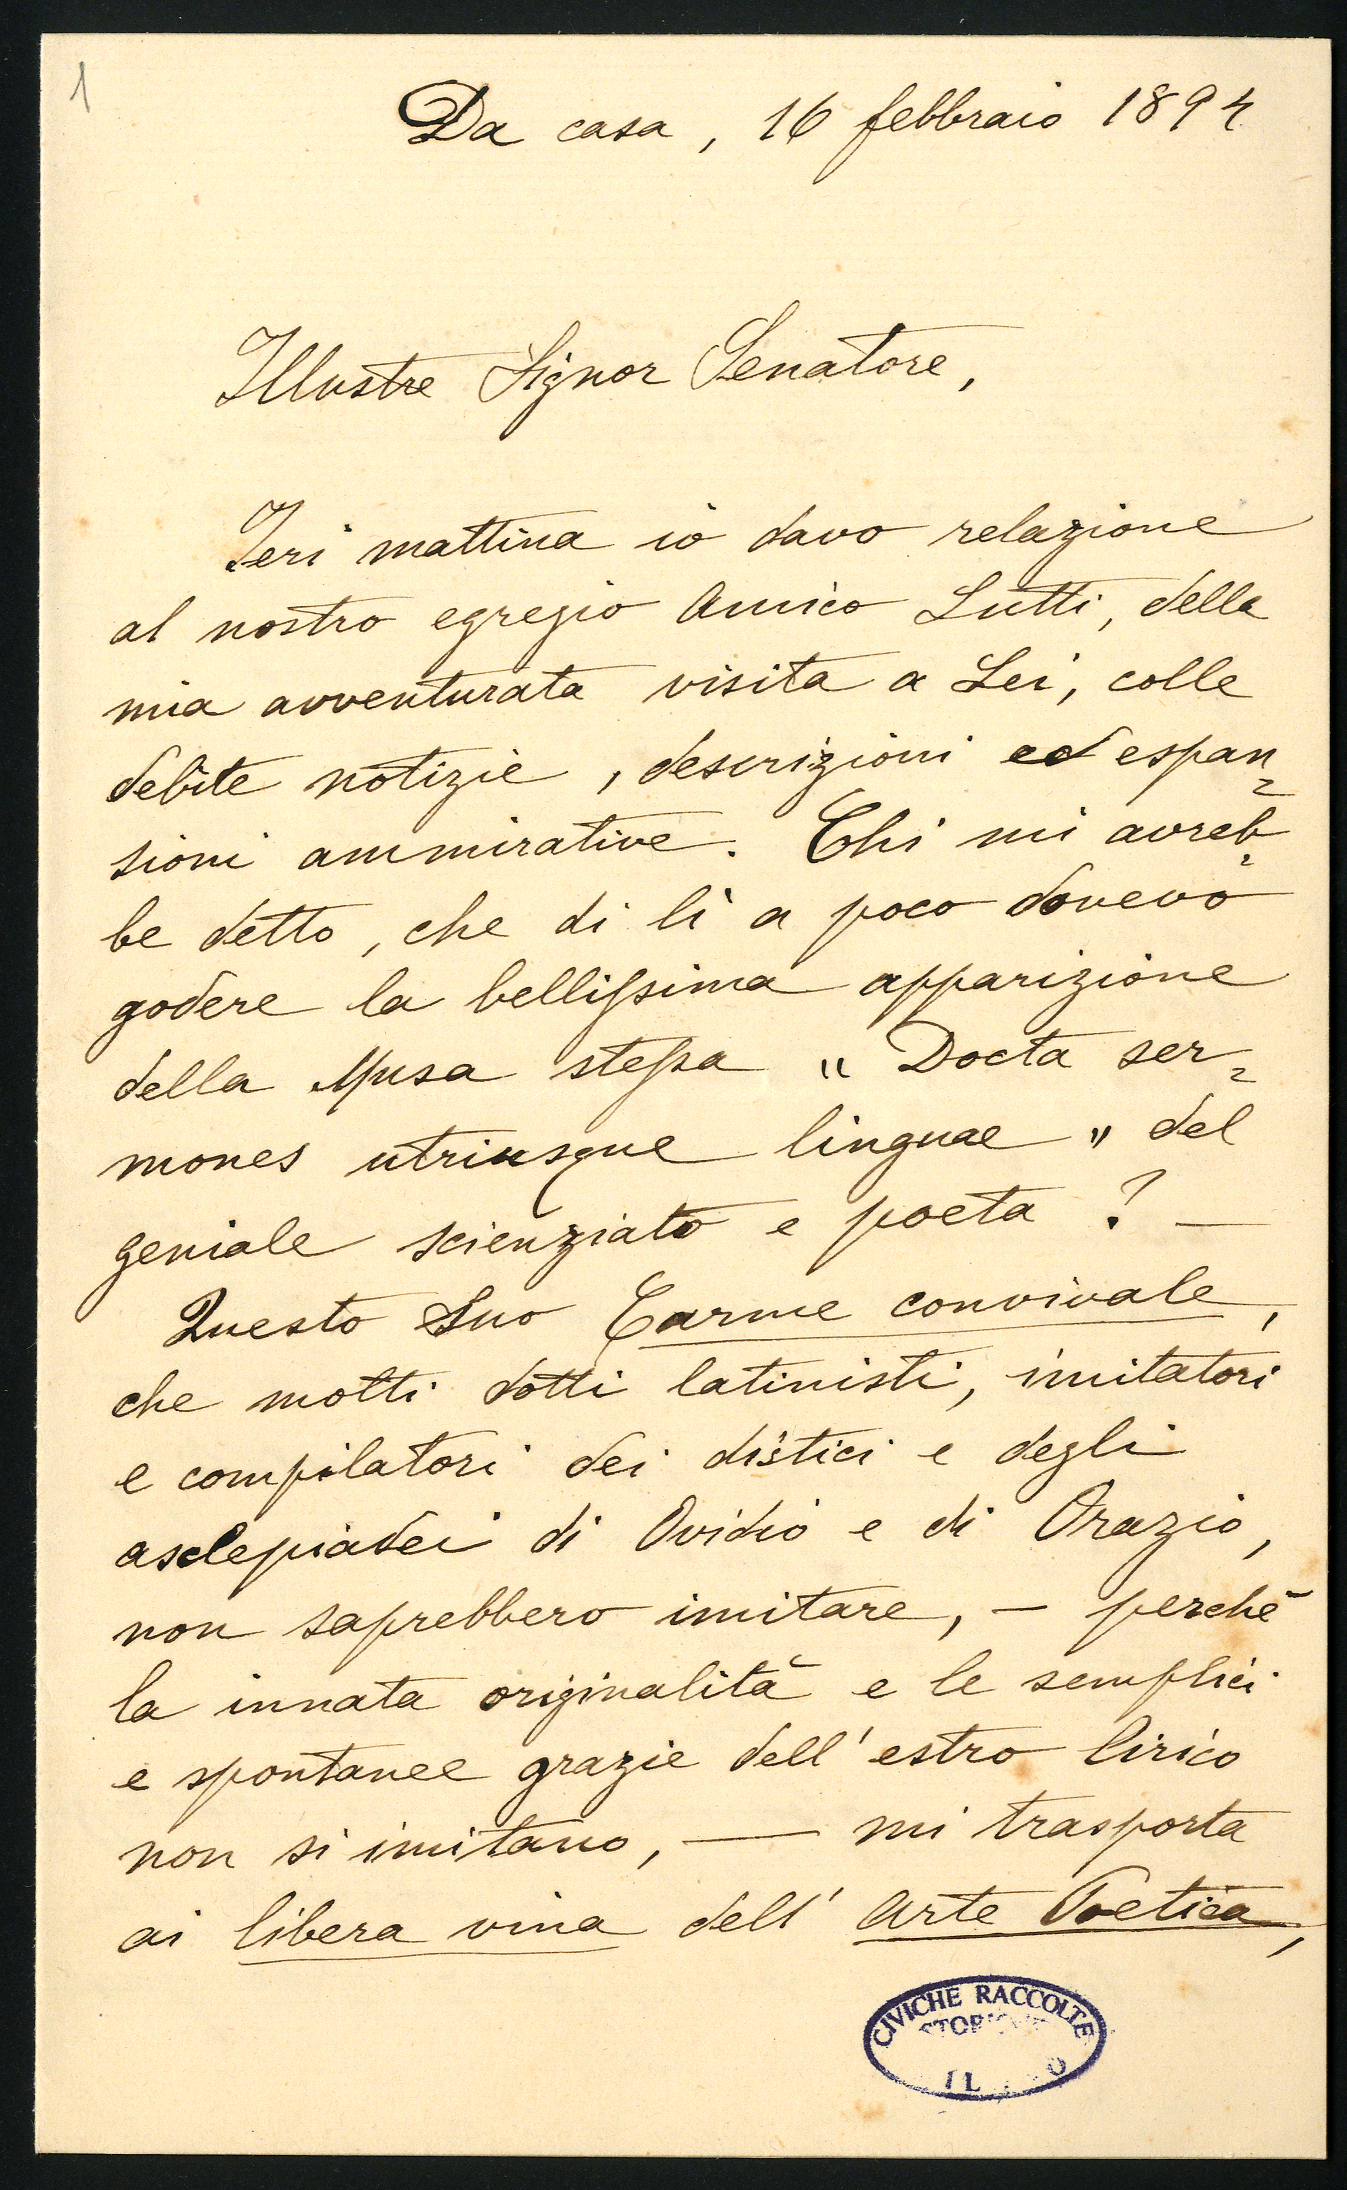 1
Da casa, 16 febbraio 1894
Illustre Signor Senatore,
Ieri mattina io davo relazione
al nostro egregio Amico Lutti, della
mia avventurata visita a Lei, colle
debite notizie, descrizioni ed espan=
sioni ammirative. Chi mi avreb=
be detto, che di lì a poco dovevo
godere la bellissima apparizione
della Musa stessa „ Docta ser=
mones utriusque linguae „ del
geniale scienziato e poeta ? —
Questo Suo Carme convivale,
che molti dotti latinisti, imitatori
e compilatori dei distici e degli
asclepiadei di Ovidio e di Orazio,
non saprebbero imitare, — perchè
la innata originalità e le semplici
e spontanee grazie dell'estro lirico
non si imitano, — mi trasporta
ai libera vina dell' Arte Poetica,
CIVICHE RACCOLTE